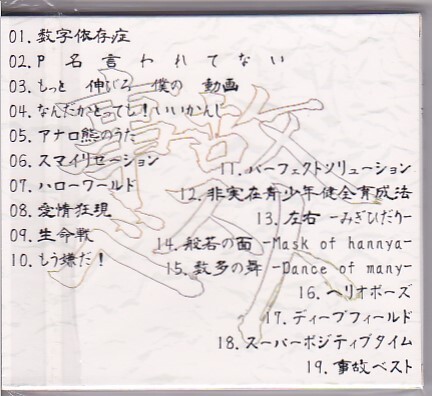 01.数字依存症
02.P 名言われてない
03.もっと 伸びろ 僕の 動画
04.なんだかとっても!いいかんじ
05.アナロ熊のうた
06.スマイリセーション
07.ハローワールド
08.愛情狂現
09.生命戦
10.もう嫌だ!
11.パーフェクトソリューション
12.非実在青少年健全育成法
13.左右 -みぎひだり-
14.般若の面 -Mask of hannya-
15.数多の舞 -Dance of many-
16.ヘリオポーズ
17.ディープフィールド
18.スーパーポジティブタイム
19.事故ベスト